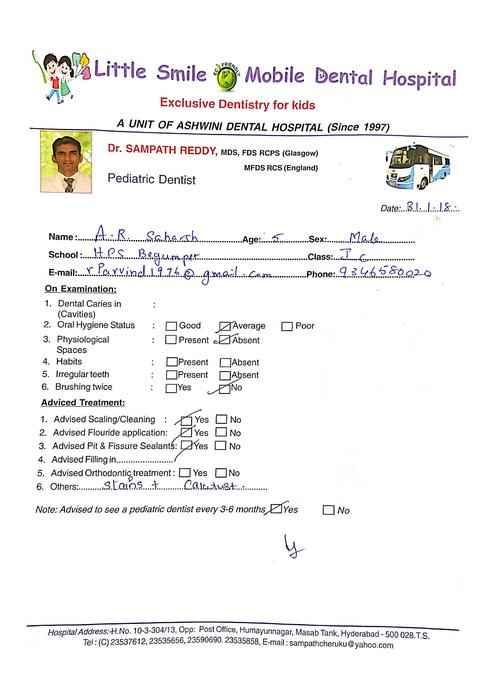 Little Smile ECO FRIENDLY Mobile Dental Hospital
Exclusive Dentistry for kids
A UNIT OF ASHWINI DENTAL HOSPITAL (Since 1997)
Dr. SAMPATH REDDY, MDS, FDS RCPS (Glasgow)
MFDS RCS (England)
Pediatric Dentist
Date: 31.1.18.
Name: A.R. Saharsh Age: 5 Sex: Male
School: HPS Begumpet Class: I C
E-mail: r.Parvind1976@gmail.com Phone: 9346580020
On Examination:
1. Dental Caries in :
(Cavities)
2. Oral Hygiene Status : Good Average Poor
3. Physiological : Present Absent
Spaces
4. Habits : Present Absent
5. Irregular teeth : Present Absent
6. Brushing twice : Yes No
Adviced Treatment:
1. Advised Scaling/Cleaning : Yes No
2. Advised Flouride application: Yes No
3. Advised Pit & Fissure Sealants: Yes No
4. Advised Filling in
5. Advised Orthodontic treatment : Yes No
6. Others: Stains +
Note: Advised to see a pediatric dentist every 3-6 months Yes No
Hospital Address:-H.No. 10-3-304/13, Opp: Post Office, Humayunnagar, Masab Tank, Hyderabad - 500 028.T.S.
Tel : (C) 23537612, 23535656, 23590690. 23535858, E-mail : sampathcheruku@yahoo.com